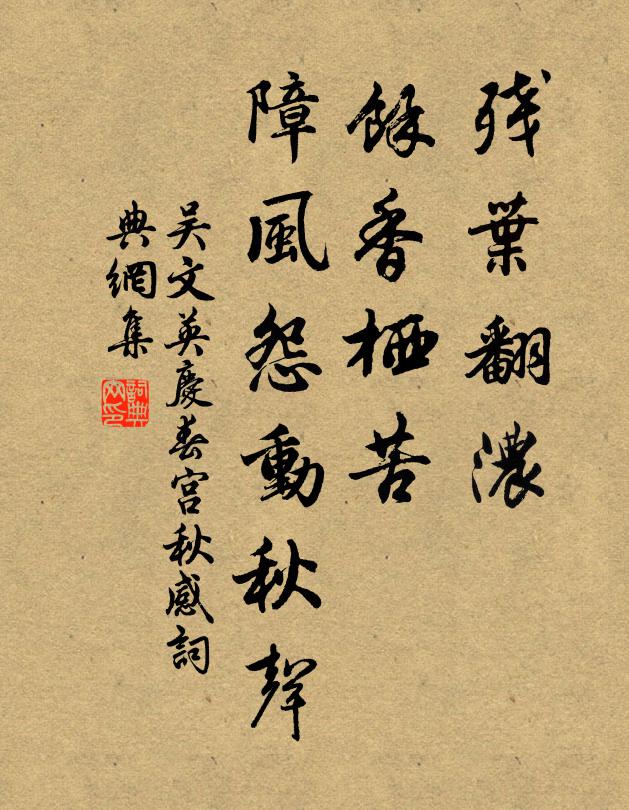 残葉翻濃
餘香栖苦
障風怨動秋聲
吴文英慶春宮秋感詞
典網集
詞典网印